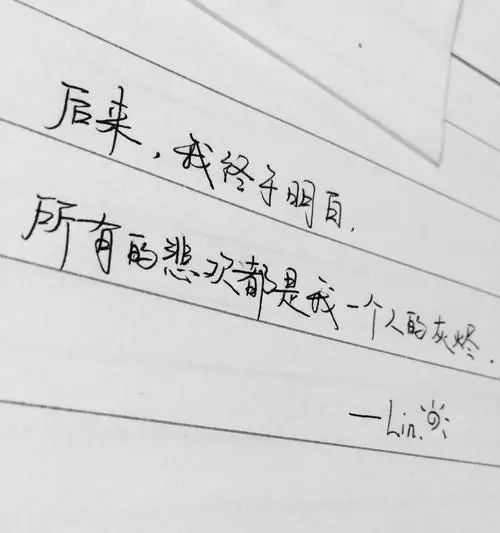 后来,我终于明白,
所有的悲欢都是我一个人的灰烬.
—Lin.